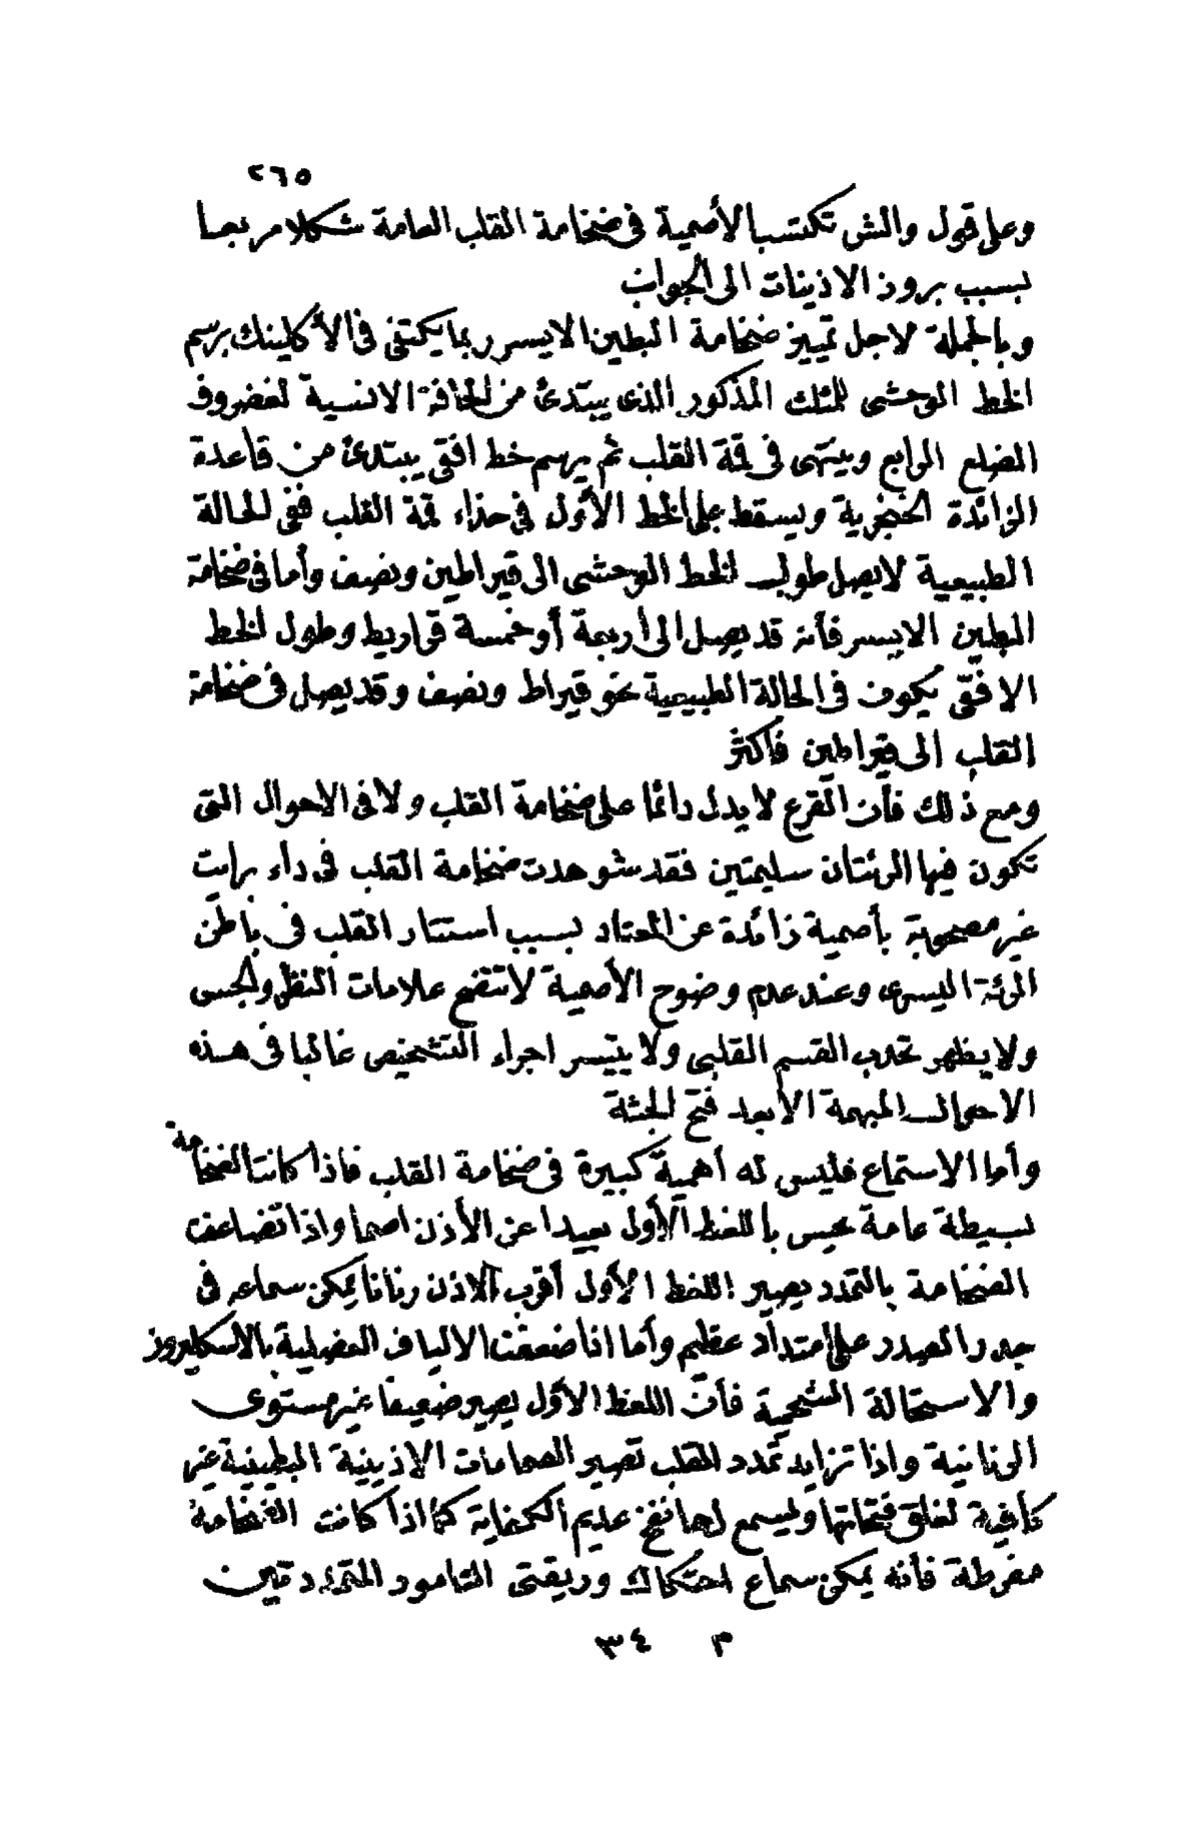 ٢٦٥
وعلى قول والش تكتسب الأصمية فى ضخامة القلب العامة شكلا مربعا
بسبب بروز الاذينات الى الجوانب
وبالجملة لاجل تمييز ضخامة البطين الايسر ربما يكتفى فى الأكلينك برسم
الخط الوحشى للمثلث المذكور الذى يبتدئ من الحافة الانسية لغضروف
الضلع الرابع وينتهى فى قمة القلب ثم يرسم خط افقى يبتدئ من قاعدة
الزائدة الخنجرية ويسقط على الخط الأول فى حذاء قمة القلب ففى الحالة
الطبيعية لا يصل طول الخط الوحشى الى قيراطين ونصف وأما فى ضخامة
البطين الايسر فأنه قد يصل الى أربعة أو خمسة قراريط وطول الخط
الافقى يكون فى الحالة الطبيعية نحو قيراط ونصف وقد يصل فى ضخامة
القلب الى قيراطين فأكثر
ومع ذلك فأن القرع لا يدل دائما على ضخامة القلب ولا فى الاحوال التى
تكون فيها الرئتان سليمتين فقد شوهدت ضخامة القلب فى داء برايت
غير مصحوبة بأصمية زائدة عن المعتاد بسبب استتار القلب فى باطن
الرئة اليسرى وعند عدم وضوح الأصمية لا تتضح علامات النظر والجس
ولا يظهر تحدب القسم القلبى ولا يتيسر اجراء التشخيص غالبا فى هذه
الاحوال المبهمة الا بعد فتح الجثة
وأما الاستماع فليس له أهمية كبيرة فى ضخامة القلب فاذا كانت الضخامة
بسيطة عامة يحس باللغط الأول بعيدا عن الأذن اصما واذا تضاعف
الضخامة بالتمدد يصير اللغط الأول أقرب للاذن رنانا يمكن سماعه فى
جدر الصدر على امتداد عظيم وأما اذا ضعفت الالياف العضلية بالاسكليروز
والاستحالة الشحمية فأن اللغط الأول يصير ضعيفا غير مستوى
الرنانية واذا تزايد تمدد القلب تصير الصمامات الاذينية البطينية غير
كافية لغلق فتحاتها وليسمع لها نفخ عديم الكفاية كما اذا كانت الضخامة
مفرطة فأنه يمكن سماع احتكاك وريقتى التامور المتمددتين
م ٣٤